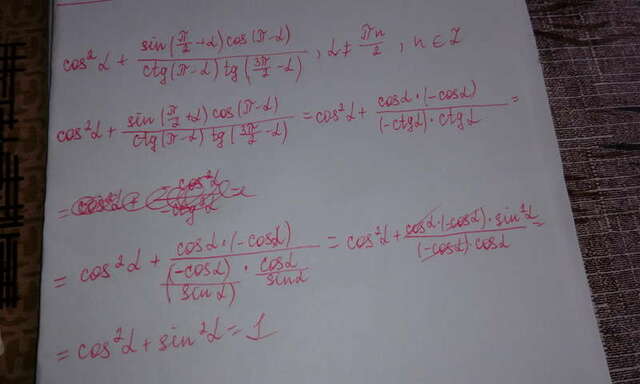 cos²α + sin(π/2 + α) cos(π - α) / ctg(π - α) tg(3π/2 - α), α ≠ πn/2, n ∈ Z
cos²α + sin(π/2 + α) cos(π - α) / ctg(π - α) tg(3π/2 - α) = cos²α + cosα · (-cosα) / (-ctgα) · ctgα =
= cos²α + cosα · (-cosα) / (-cosα)/(sinα) · cosα/sinα = cos²α + cosα · (-cosα) · sin²α / (-cosα) · cosα =
= cos²α + sin²α = 1